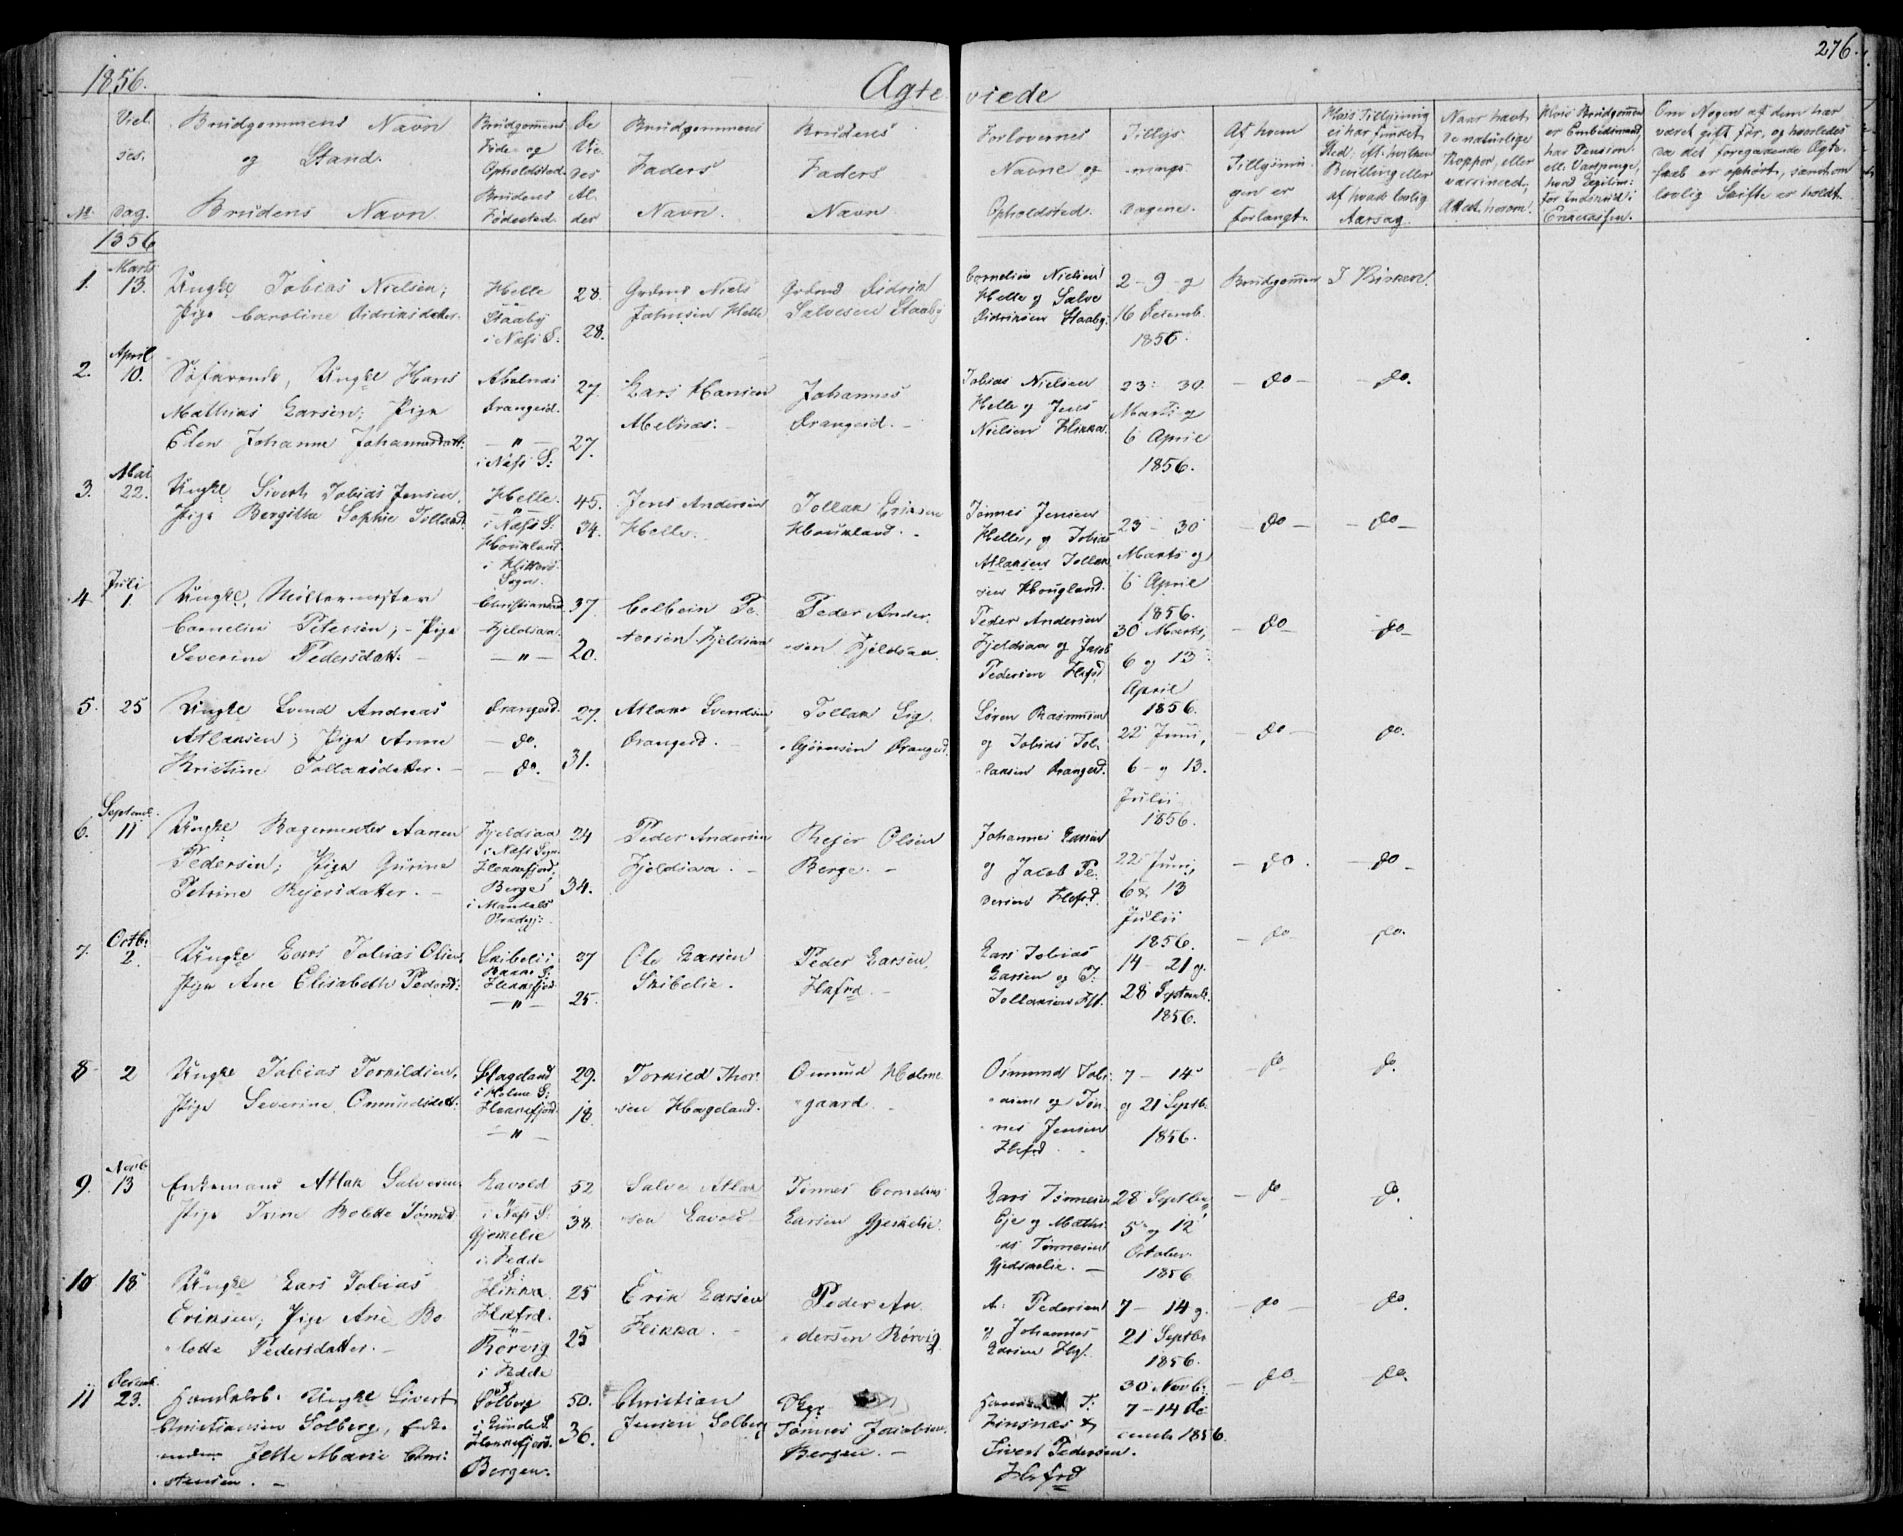 1856.
Ægte
viede
276.
No.
Viel-
ses.
Dag.
Brudgommens Navn
og Stand.
Brudens Navn
Brudgommens
Føde- og
Opholdsted.
Brudens
Fødested.
De
Vie
des
Al-
der
Brudgommens
Faders
Navn.
Brudens
Faders
Navn.
Forlovernes
Navne og
Opholdsted.
Tillys
nings-
dagene.
Af hvem
Tillysnin
gen er
forlangt.
Hvis Tillysning
ei har fundet
Sted; Af hvilken
Bevilling eller
af hvad lovlig
Aarsag.
Naar havt
de naturlige
Kopper, eller
vaccineret,
Attest herom.
Hvis Brudgommen
er Embedsmand,
har Pension
ell. Vartpenge,
hvad Legitim:
for Indskud i
Enkekassen.
Om Nogen af dem har
været gift før, og hvorledes
da det foregaaende Ægte-
skab er ophørt, samt om
lovlig Skifte er holdt.
1856
1. Marts 13. Ungk. Tobias Nielsen;
Pige Caroline Didriksdatter.
Helle
Staaby
i Næss S:
28.
28.
Niels
Jahnsen Helle
Didrik
Salvesen Staaby
Cornelius Nielsen
Helle og Salve
Didriksen Staaby.
2 - 9 - og
16 Decemb.
1856.
Brudgommen
I Kirken.
2. April 10. Søfarende, Ungk. Hans
Mathias Larsen; Pige
Elen Johanne Johannesdatt:
Abelnæs
Drangeid.
— " —
i Næss S:
27.
27.
Lars Hansen
Abelnæs.
Johannes
Drangeid. —
Tobias Nielsen
Helle og Jens
Nielsen Flikka.
23 - 30
Marts og
6 April
1856.
— do —
— do.
3. Mai 22. Ungk. Sivert Tobias Jensen,
Pige Bergitha Sophie
Helle.
i Næss S:
Houkland
i Hitterø
Sogn.
45.
34.
Jens Andersen
Helle.
Tollak Eriksen
Houkland. —
Tønnes Jensen
Helle, og Tobias
Atlaksen
Hougland.
23 - 30
Marts og
6 April
1856.
— do —
— do —
4. Juli 1. Ungk.
Cornelius Petersen; — Pige
Severine Pedersdatt: —
Fjeldsaa
— " —
37.
20.
Colbein Pe-
tersen Fjeldsaa
Peder Ander-
sen Fjeldsaa.
Peder Andersen
Fjeldsaa og Jacob
Pedersen Flfrd
30 Marts,
6 og 13
April
1856.
— do —
— do —
5. 25 Ungk. Svend Andreas
Atlaksen; Pige Anne
Kristine Tollaksdatter. —
Drangeid.
— do.
— do. —
27.
31.
Atlak Svendsen
Drangeid. —
Tollak Sig-
bjørnsen Drangeid.
Søren Rasmussen
og Tobias Tol-
laksen Drangeid.
22 Juni,
6 - og 13.
Julii
1856.
— do —
do.
6. Septemb. 11 Ungk. Bagermester Aanen
Pedersen; Pige Gurine
Petrine Rejersdatter. —
Fjeldsaa
i Næss Sogn
Flekkefjord.
Berge
i Mandals
Præstgj:
24
34.
Peder Andersen
Fjeldsaa. —
Rejer Olsen
Berge. —
Johannes Larsen
og Jacob Pe-
dersen Flkfrd.
22 Juni,
6 & 13
Julii
1856.
— do.
— do
7. Octb: 2. Ungk. Lars Tobias Olsen
Pige Ane Elisabeth Pedersd:
Skibelii
Flekkefjord
— " —
27
25.
Ole Larsen
Skibelie.
Peder Larsen,
Flkfrd. —
Lars Tobias
Larsen og T:
Tollaksen Flf.
14 - 21 og
28 Septemb.
1856.
— do
do.
8 2 Ungk. Tobias Torkildsen,
Pige Severine Omundsdatt:
Hageland
i Holme S:
Flekkefjord
— " —
29.
18.
Torkild Thor-
sen Hageland.
Omund Holme-
gaard.
Omund Tobi-
asen og Tøn-
nes Jensen
Flkfrd
7 - 14
og 21 Septb.
1856.
— do
do.
9. Novb. 13 Enkemand Atlak Salvesen
Pige Trine Bolette Tønnesd:
Lavold
i Næss S:
Gjeskelie
i Fedde
S.
52
38.
Salve Atlak-
sen Lavold
Tønnes Cornelius
Larsen Gjeskelie.
Lars Tønnesen
Eje og Mathi-
as Tønnesen
28 Septbr,
5 og 12
October
1856
— do
do.
10 18 Ungk. Lars Tobias
Eriksen; Pige Ane Bo-
lette Pedersdatter. —
Flikka
Flkfrd.
Rørvig
i Fedde
S.
25
25
Erik Larsen
Flikka. —
Peder An-
dersen Rørvig
A. Pedersen
og Johannes
Larsen Flkf.
7 - 14 og
21 Septbr
1856.
— do —
do.
11 Decemb. 23. Ungk. Sivert
Christiansen Solberg, Enke-
Jette Marie Chri-
stensen. —
Solberg
Flekkefjord.
Bergen.
50.
36.
Christian
Jensen Solberg
Tønnes Jacobsen,
Bergen. —
T.
Sivert Pedersen.
Flkfrd
30 Novb:
7 - 14 De
cemb 1856.
— do —
do.